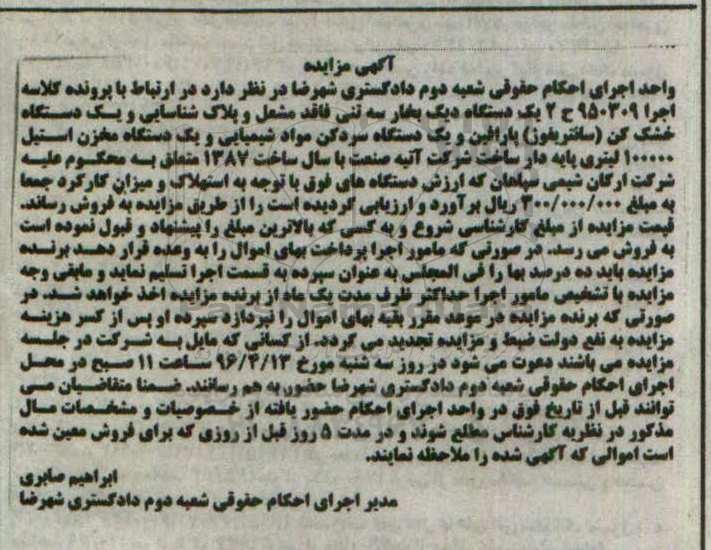 آگهی مزایده
واحد اجرای احکام حقوقی شعبه دوم دادگستری شهرضا در نظر دارد در ارتباط با پرونده کلاسه
اجرا ۹۵۰۳۰۹ ح ۲ یک دستگاه دیک بخار سه تنی فاقد مشعل و پلاک شناسایی و یک دستگاه
خشک کن (سانتریفوژ) پارافین و یک دستگاه سردکن مواد شیمیایی و یک دستگاه مخزن استیل
۱۰۰۰۰۰ لیتری پایه دار ساخت شرکت آتیه صنعت با سال ساخت ۱۳۸۷ متعلق به محکوم علیه
شرکت ارکان شیمی سپاهان که ارزش دستگاه های فوق با توجه به استهلاک و میزان کارکرد جمعا
به مبلغ ۳۰۰/۰۰۰/۰۰۰ ریال برآورد و ارزیابی گردیده است را از طریق مزایده به فروش رساند.
قیمت مزایده از مبلغ کارشناسی شروع و به کسی که بالاترین مبلغ را پیشنهاد و قبول نموده است
به فروش می رسد. در صورتی که مامور اجرا پرداخت بهای اموال را به وعده قرار دهد برنده
مزایده باید ده درصد بها را فی المجلس به عنوان سپرده به قسمت اجرا تسلیم نماید و مابقی وجه
مزایده با تشخیص مامور اجرا حداکثر ظرف مدت یک ماه از برنده مزایده اخذ خواهد شد. در
صورتی که برنده مزایده در موعد مقرر بقیه بهای اموال را نپردازد سپرده او پس از کسر هزینه
مزایده به نفع دولت ضبط و مزایده تجدید می گردد. از کسانی که مایل به شرکت در جلسه
مزایده می باشند دعوت می شود در روز سه شنبه مورخ ۹۶/۴/۱۳ ساعت ۱۱ صبح در محل
اجرای احکام حقوقی شعبه دوم دادگستری شهرضا حضور به هم رسانند. ضمنا متقاضیان می
توانند قبل از تاریخ فوق در واحد اجرای احکام حضور یافته از خصوصیات و مشخصات مال
مذکور در نظریه کارشناس مطلع شوند و در مدت ۵ روز قبل از روزی که برای فروش معین شده
است اموالی که آگهی شده را ملاحظه نمایند.
ابراهیم صابری
مدیر اجرای احکام حقوقی شعبه دوم دادگستری شهرضا